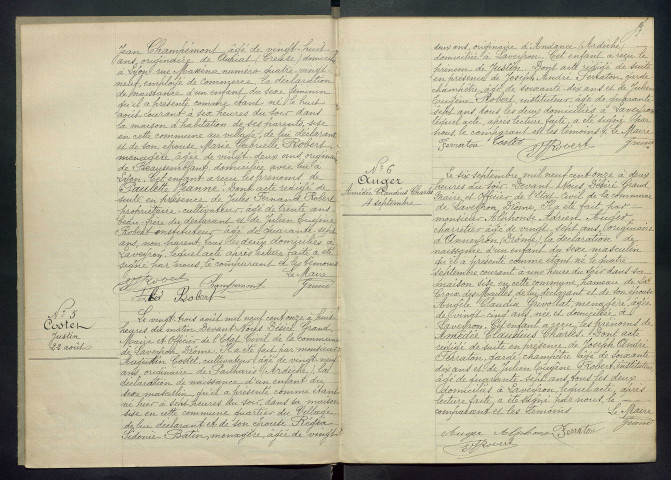 Jean Champémont âgé de vingt-huit
ans, originaire de Auriat (Creuse) domicilié
à Lyon rue Masséna numéro quatre vingt
neuf, employé de commerce. La déclaration
de naissance d'un enfant du sexe féminin
qu'il a présenté comme étant né le huit
août courant à six heures du soir dans
la maison d'habitation de ses parents, sise
en cette commune au village, de lui déclarant
et de son épouse Marie Gabrielle Robert
ménagère, âgée de vingt deux ans originaire
de Beausemblant, domiciliée avec lui à
Lyon. Cet enfant a reçu les prénoms de
Paulette Jeanne. Dont acte rédigé de
suite en présence de Jules Fernand Robert
propriétaire-cultivateur, âgé de trente ans
beau-frère du déclarant et de Julien Eugène
Robert instituteur âgé de quarante sept
ans, non parent tous les deux domiciliés à
Laveyron, lequel acte après lecture faite a été
signé par nous, le comparant et les témoins
Le Maire
Robert
Champémont
Grand
Robert
N° 5
Coste
Justin
22 août
Le vingt trois août mil neuf cent onze à huit
heures du matin Devant Nous Désiré Grand
Maire et Officier de l'Etat Civil de la commune
de Laveyron, Drôme. A comparu monsieur
Augustin Coste, cultivateur, âgé de vingt neuf
ans, originaire de Pailharès (Ardèche) La
déclaration de naissance d'un enfant du
sexe masculin, qu'il a présenté comme étant
né hier à sept heures du soir, dans sa maison
sise en cette commune quartier du Village
de lui déclarant et de son épouse
Sidonie Batin, ménagère, âgée de vingt
deux ans, originaire d'Andance (Ardèche)
domiciliée à Laveyron. Cet enfant a reçu le
prénom de Justin. Dont acte rédigé de suite
en présence de Joseph André Ferraton, garde
champêtre, âgé de soixante dix ans et de Julien
Eugène Robert, instituteur, âgé de quarante
sept ans, tous les deux domiciliés à Laveyron
lequel acte, après lecture faite, a été signé par
nous, le comparant et les témoins. Le Maire
Ferraton Coste
Robert
Grand
N° 6
Auger
Amédée Claudius Charles
4 septembre
Le six septembre mil neuf cent onze à deux
heures du soir. Devant Nous Désiré Grand
Maire et Officier de l'Etat Civil de la commune
de Laveyron, Drôme,
monsieur Alphonse Adrien Auger,
charretier âgé de vingt sept ans, originaire
d'Anneyron (Drôme) la déclaration de
naissance d'un enfant du sexe masculin
qu'il a présenté comme étant né le quatre
septembre courant à une heure du soir dans son
maison sise en cette commune, hameau de La
Croix des Mailles, de lui déclarant et de son épouse
Angèle Claudia Grivollat, ménagère, âgée
de vingt cinq ans, née et domiciliée à
Laveyron. Cet enfant a reçu les prénoms de
Amédée Claudius Charles. Dont acte
rédigé de suite en présence de Joseph André
Ferraton, garde champêtre âgé de soixante
dix ans et de Julien Eugène Robert, instituteur,
âgé de quarante sept ans tous les deux
domiciliés à Laveyron, lequel acte, après
lecture faite, a été signé par nous, le
comparant et les témoins
Le Maire
Grand
Auger Alphonse Ferraton
Robert